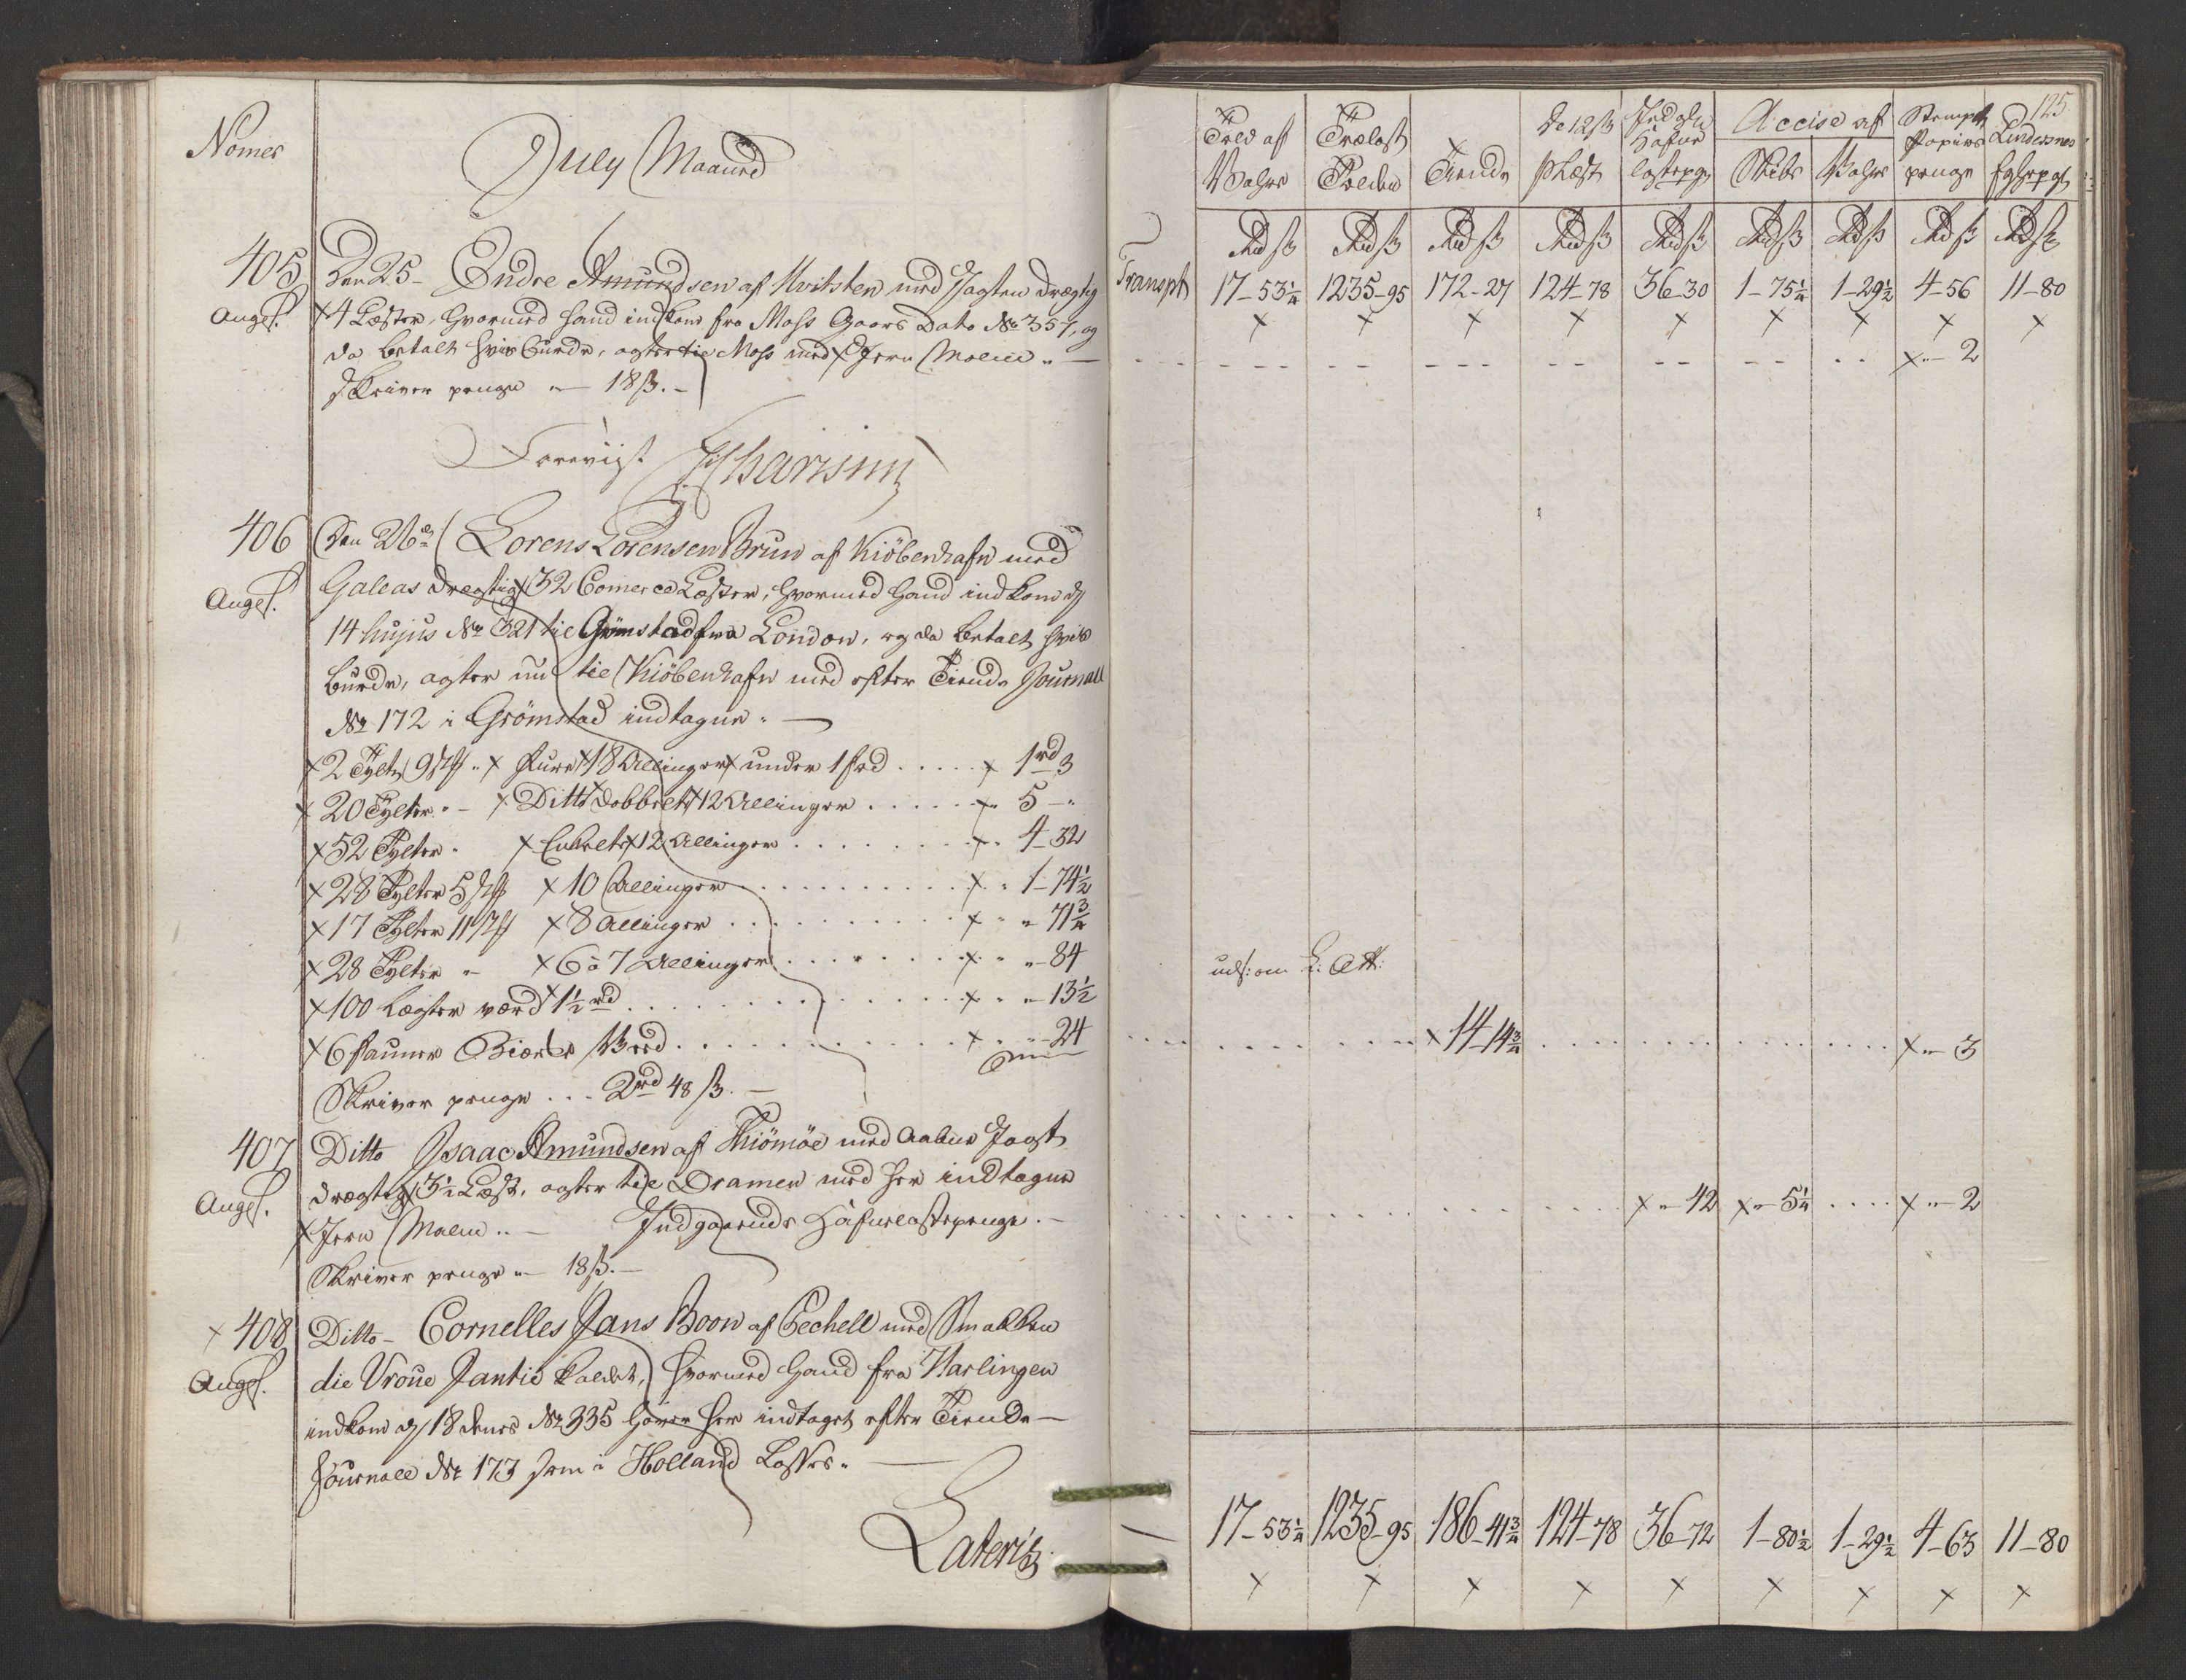 Nomer
July Maaned
405
Angel.
Den 25 - Endre Amundsen af Hvitsten med Jagten drægtig
4 Læster, hvormed hand indkom fra Moss Gaars Dato No 357, og
da betalt hvis burde, agter til Moss med Jern Malm " —
Skriver penge " — 18 ß. -
Forevigt
406
Angel.
Den 26de Lorens Lorensen Brun af Kiöbenhafn med
Galeas drægtig 32 Comerce Læster, hvormed hand indkom d
14 hujus No 321 til Grömstad fra London, og da betalt hvis
burde, agter nu til Kiöbenhafn med efter Tiende Journall
No 172 i Grömstad indtagne " —
2 Tylter 9 st " Fure 18 Allinger under 1 fod . . . . . 1 rd 3
20 Tylter " - Ditto dobbelt 12 Allinger . . . . . 5 - "
52 Tylter " Enkelte 12 Allinger . . . . . . . 4 - 32
28 Tylter 5 st 10 Allinger . . . . . . . . . . " 1 - 74 1/2
17 Tylter 11 st 8 Allinger . . . . . . . . . " " 71 3/4
28 Tylter " - 6 à 7 Allinger . . . . . . . . " " - 84
100 Lægter værd 1 1/2 rd . . . . . . . . . . . " " - 13 1/2
6 fauner Birke Veed . . . . . . . . . . . " " - 24
Skriver penge . . . 2 rd 48 ß. —
407
Angel.
Ditto Isaac Amundsen af Thiömöe med aaben Jagt
drægtig 3 1/2 Læst, agter til Dramen med her indtagne
Jern Malm " — Indgaaende Hafnelastepenge . -
Skriver penge " — 18 ß. —
408
Angel.
Ditto - Cornelles Jans Boon af Eechell med Smakken
die Vroue Jantie kaldet, hvormed hand fra Harlingen
indkom d 18 denes No 335 haver her indtaget efter Tiende —
Journall No 173 som i Holland Losses " —
Lateris
125
Told af Wahre
Trælast Tolden
Tiende
De 12 ß p Læst
Indg: Hafne lastepg
Accise af
Skibe
Wahre
Stempt Papiirs penge
Lindesnes fyhrpg
Rd ß Rd ß Rd ß Rd ß Rd ß Rd ß Rd ß Rd ß Rd ß
Transpt 17 - 53 1/4 1235 - 95 172 - 27 124 - 78 36 - 30 1 - 75 1/4 1 - 29 1/2 4 - 56 11 - 80
" - 2
uds: om L: Att:
14 - 14 3/4 " - 3
" - 42 " - 5 1/4 " - 2
17 - 53 1/4 1235 - 95 186 - 41 3/4 124 - 78 36 - 72 1 - 80 1/2 1 - 29 1/2 4 - 63 11 - 80